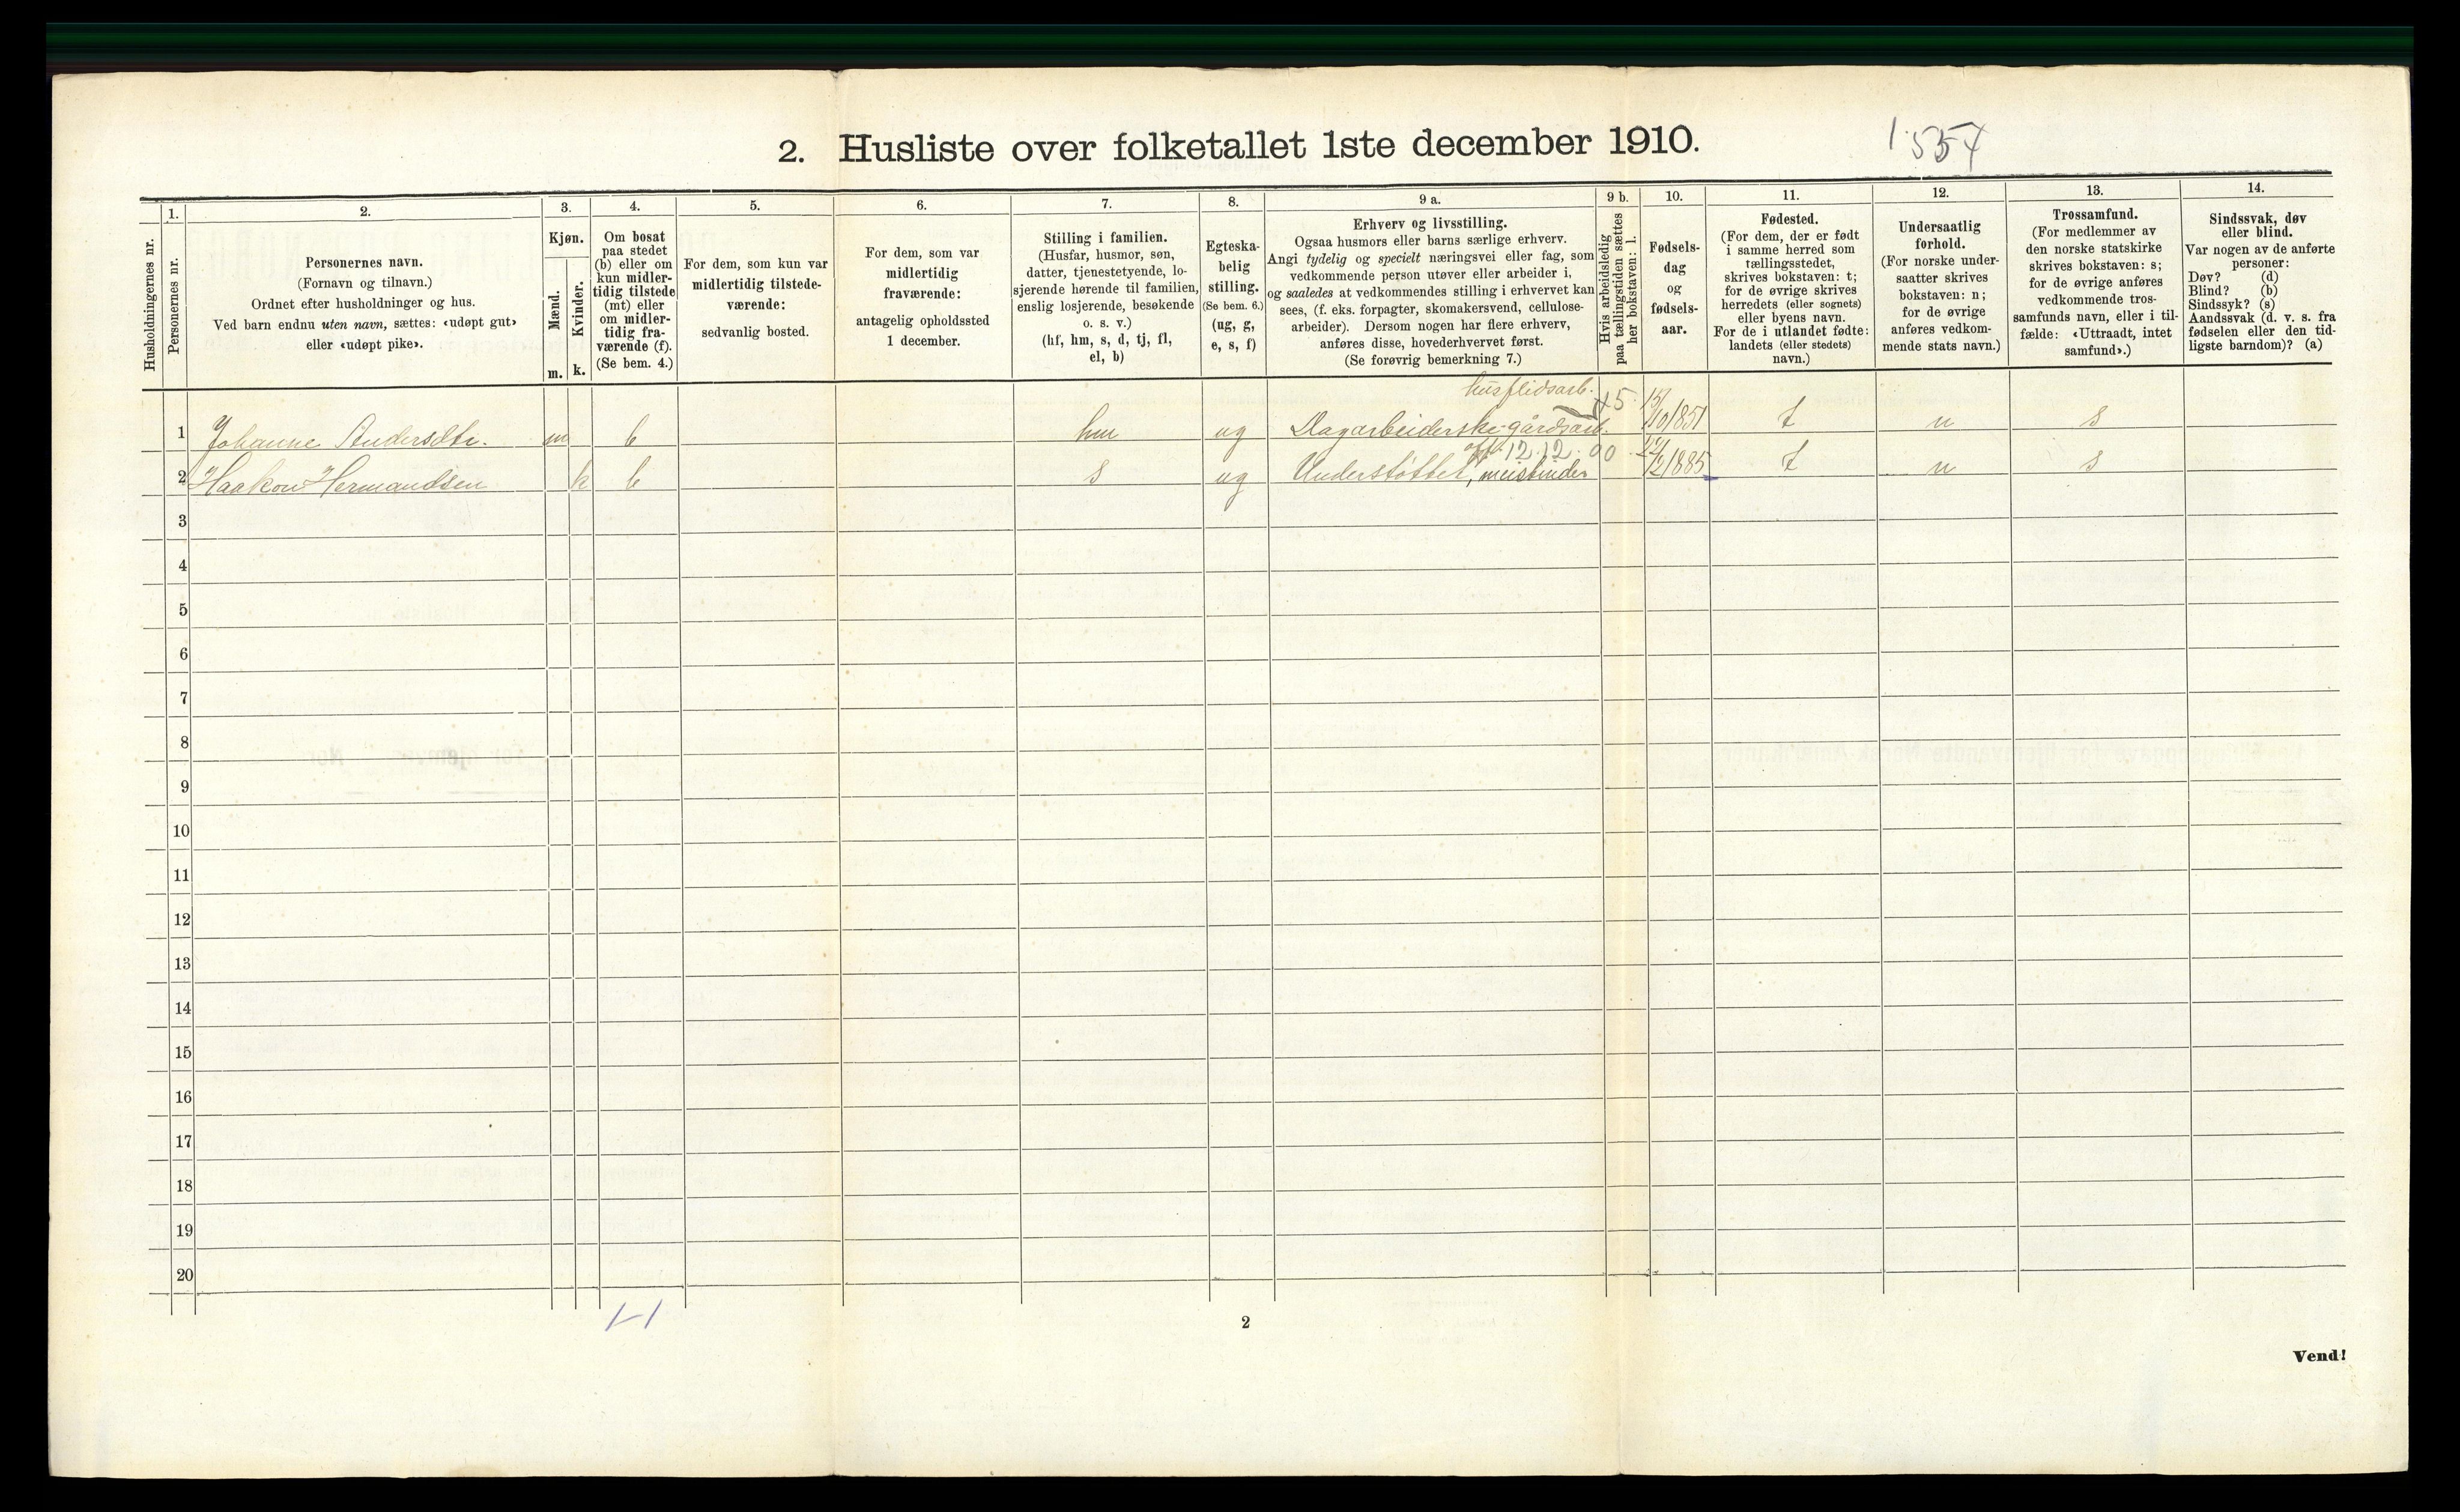 2. Husliste over folketallet 1ste december 1910.
1557
Husholdningernes nr.
1.
Personernes nr.
2.
Personernes navn.
(Fornavn og tilnavn.)
Ordnet efter husholdninger og hus.
Ved barn endnu uten navn, sættes: «udøpt gut»
eller «udøpt pike».
3.
Kjøn.
Mænd.
Kvinder.
m. k.
4.
Om bosat
paa stedet
(b) eller om
kun midler-
tidig tilstede
(mt) eller
om midler-
tidig fra-
værende (f).
(Se bem. 4.)
5.
For dem, som kun var
midlertidig tilstede-
værende:
sedvanlig bosted.
6.
For dem, som var
midlertidig
fraværende:
antagelig opholdssted
1 december.
7.
Stilling i familien.
(Husfar, husmor, søn,
datter, tjenestetyende, lo-
sjerende hørende til familien,
enslig losjerende, besøkende
o. s. v.)
(hf, hm, s, d, tj, fl,
el, b)
8.
Egteska-
belig
stilling.
(Se bem. 6.)
(ug, g,
e, s, f)
9 a.
Erhverv og livsstilling.
Ogsaa husmors eller barns særlige erhverv.
Angi tydelig og specielt næringsvei eller fag, som
vedkommende person utøver eller arbeider i,
og saaledes at vedkommendes stilling i erhvervet kan
sees, (f. eks. forpagter, skomakersvend, cellulose-
arbeider). Dersom nogen har flere erhverv,
anføres disse, hovederhvervet først.
(Se forøvrig bemerkning 7.)
9 b.
Hvis arbeidsledig
paa tællingstiden sættes
her bokstaven: l.
10.
Fødsels-
dag
og
fødsels-
aar.
11.
Fødested.
(For dem, der er født
i samme herred som
tællingsstedet,
skrives bokstaven: t;
for de øvrige skrives
herredets (eller sognets)
eller byens navn.
For de i utlandet fødte:
landets (eller stedets)
navn.)
12.
Undersaatlig
forhold.
(For norske under-
saatter skrives
bokstaven: n;
for de øvrige
anføres vedkom-
mende stats navn.)
13.
Trossamfund.
(For medlemmer av
den norske statskirke
skrives bokstaven: s;
for de øvrige anføres
vedkommende tros-
samfunds navn, eller i til-
fælde: «Uttraadt, intet
samfund».)
14.
Sindssvak, døv
eller blind.
Var nogen av de anførte
personer:
Døv? (d)
Blind? (b)
Sindssyk? (s)
Aandssvak (d. v. s. fra
fødselen eller den tid-
ligste barndom)? (a)
husflidsarb.
1 Johanne Andersdtr. m b hm ug Dagarbeiderske-gårdsarb. 15/10 1851 t n s
12.12.00
2 Haakon Hermandsen k b s ug Understøttet, /2 1885 t n s
3
4
5
6
7
8
9
10
11
12
13
14
15
16
17
18
19
20
1-1
2
Vend!